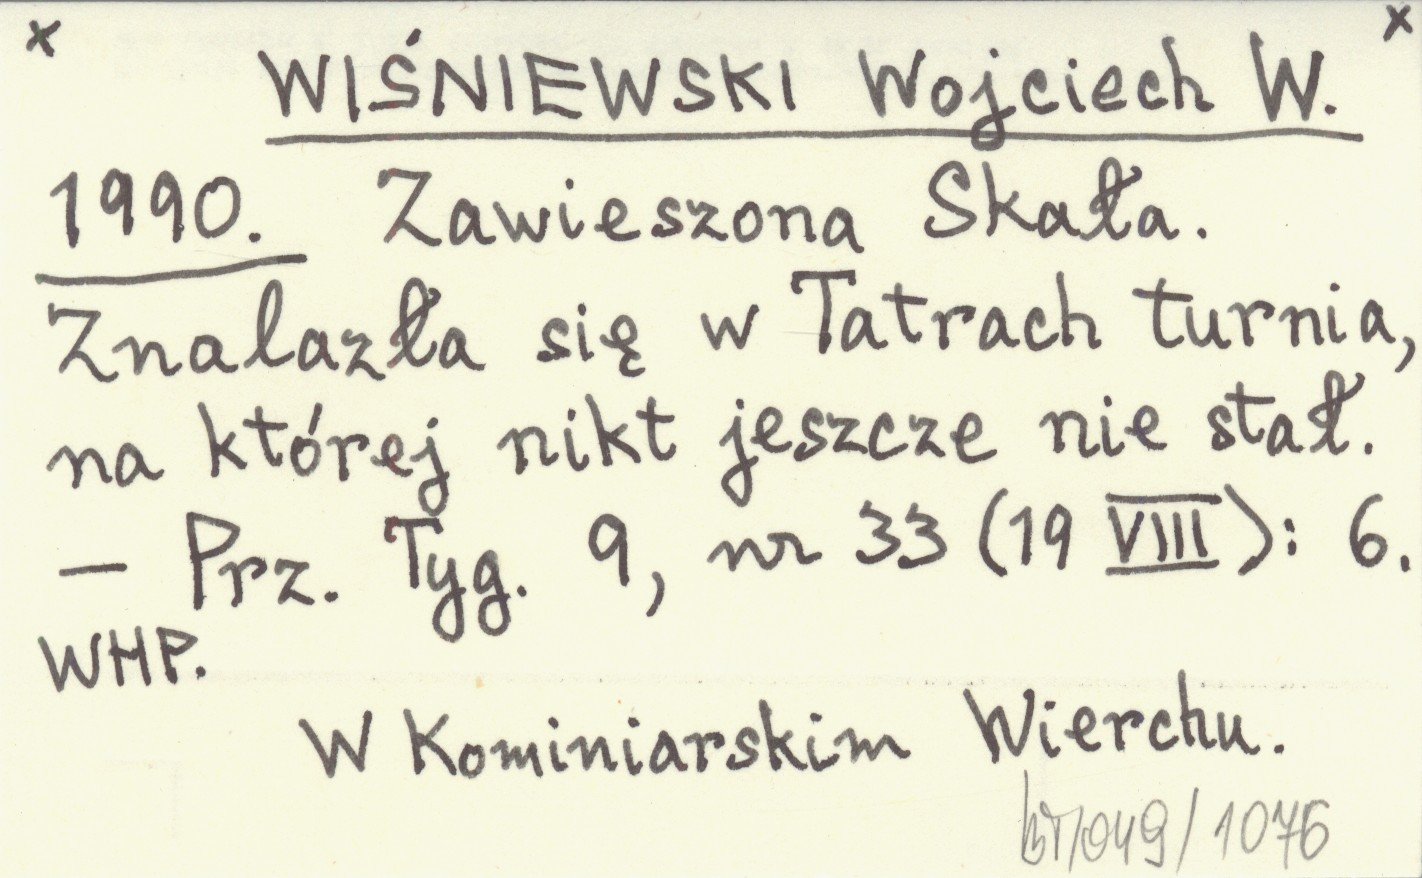 x x
WIŚNIEWSKI Wojciech W.
1990. Zawieszona Skała.
Znalazła się w Tatrach turnia,
na której nikt jeszcze nie stał.
— Prz. Tyg. 9, nr 33 (19 VIII): 6.
WHP.
W Kominiarskim Wierchu.
/049/1076